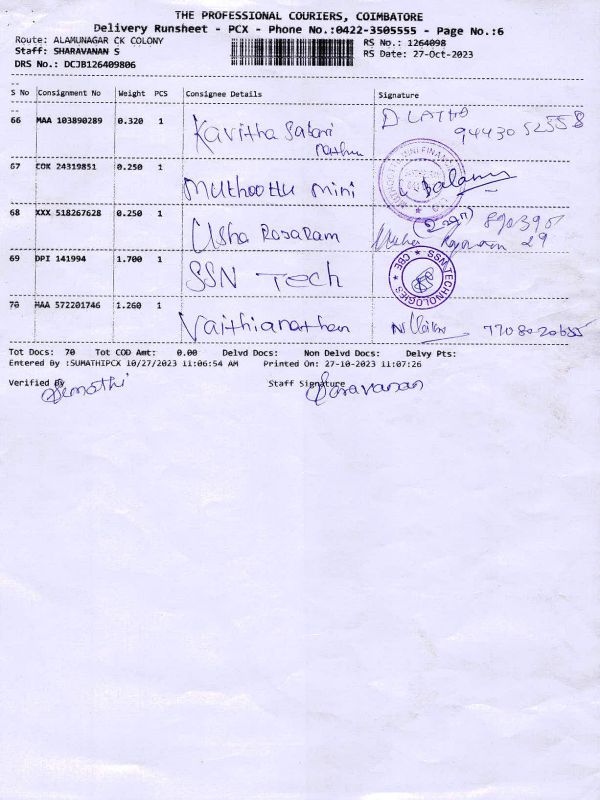 THE PROFESSIONAL COURIERS, COIMBATORE
Delivery Runsheet - PCX - Phone No.:0422-3505555 - Page No.:6
Route: ALAMUNAGAR CK COLONY RS No.: 1264098
Staff: SHARAVANAN S RS Date: 27-Oct-2023
DRS No.: DCJB126409806
S No Consignment No Weight PCS Consignee Details Signature
66 MAA 103890289 0.320 1 Kavitha Sabari D LATHA
94430 52558
67 COK 24319851 0.250 1 Muthoottu mini
68 XXX 518267628 0.250 1 Usha Rajaram
69 DPI 141994 1.700 1 SSN Tech SSN TECHNOLOGIES ★ CBE ★
70 MAA 572201746 1.260 1 Vaithianathan
Tot Docs: 70 Tot COD Amt: 0.00 Delvd Docs: Non Delvd Docs: Delvy Pts:
Entered By :SUMATHIPCX 10/27/2023 11:06:54 AM Printed On: 27-10-2023 11:07:26
Verified By Staff Signature
Sumathi Saravanan